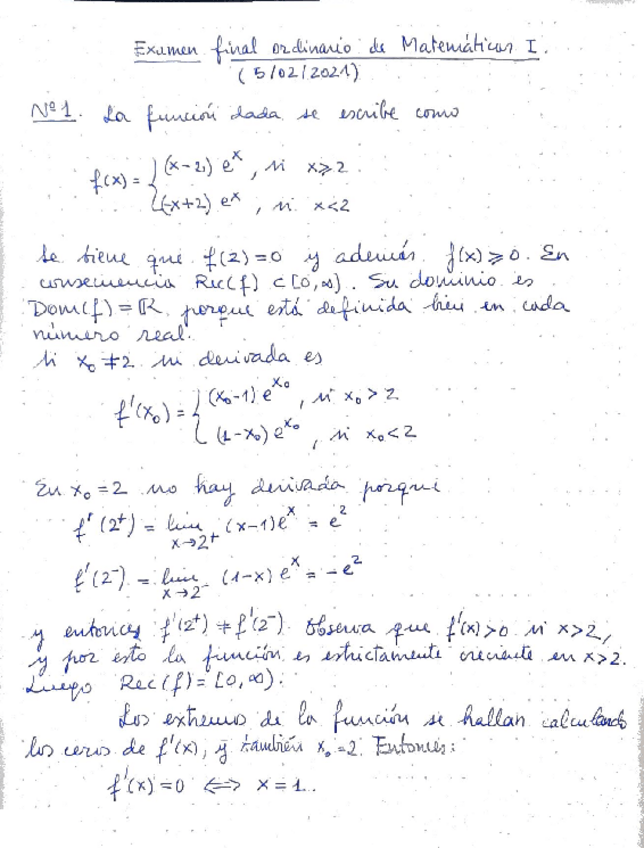 Examen final ordinario de Matemáticas I.
(5/02/2021)
Nº1. La función dada se escribe como
f(x) = { (x-2) e^x, si x ≥ 2.
(-x+2) e^x, si x < 2
Se tiene que f(2)=0 y además f(x) ≥ 0. En
consecuencia Rec(f) ⊂ [0,∞). Su dominio es
Dom(f) = ℝ porque está definida bien en cada
número real.
Si x₀ ≠ 2 su derivada es
f'(x₀) = { (x₀-1) e^x₀, si x₀ > 2
(1-x₀) e^x₀, si x₀ < 2
En x₀ = 2 no hay derivada porque
f'(2⁺) = lim x→2⁺ (x-1)e^x = e²
f'(2⁻) = lim x→2⁻ (1-x) e^x = -e²
y entonces f'(2⁺) ≠ f'(2⁻). Observa que f'(x)>0 si x>2,
y por esto la función es estrictamente creciente en x>2.
Luego Rec(f) = [0,∞).
Los extremos de la función se hallan calculando
los ceros de f'(x), y también x₀=2. Entonces:
f'(x)=0 ⟺ x=1.